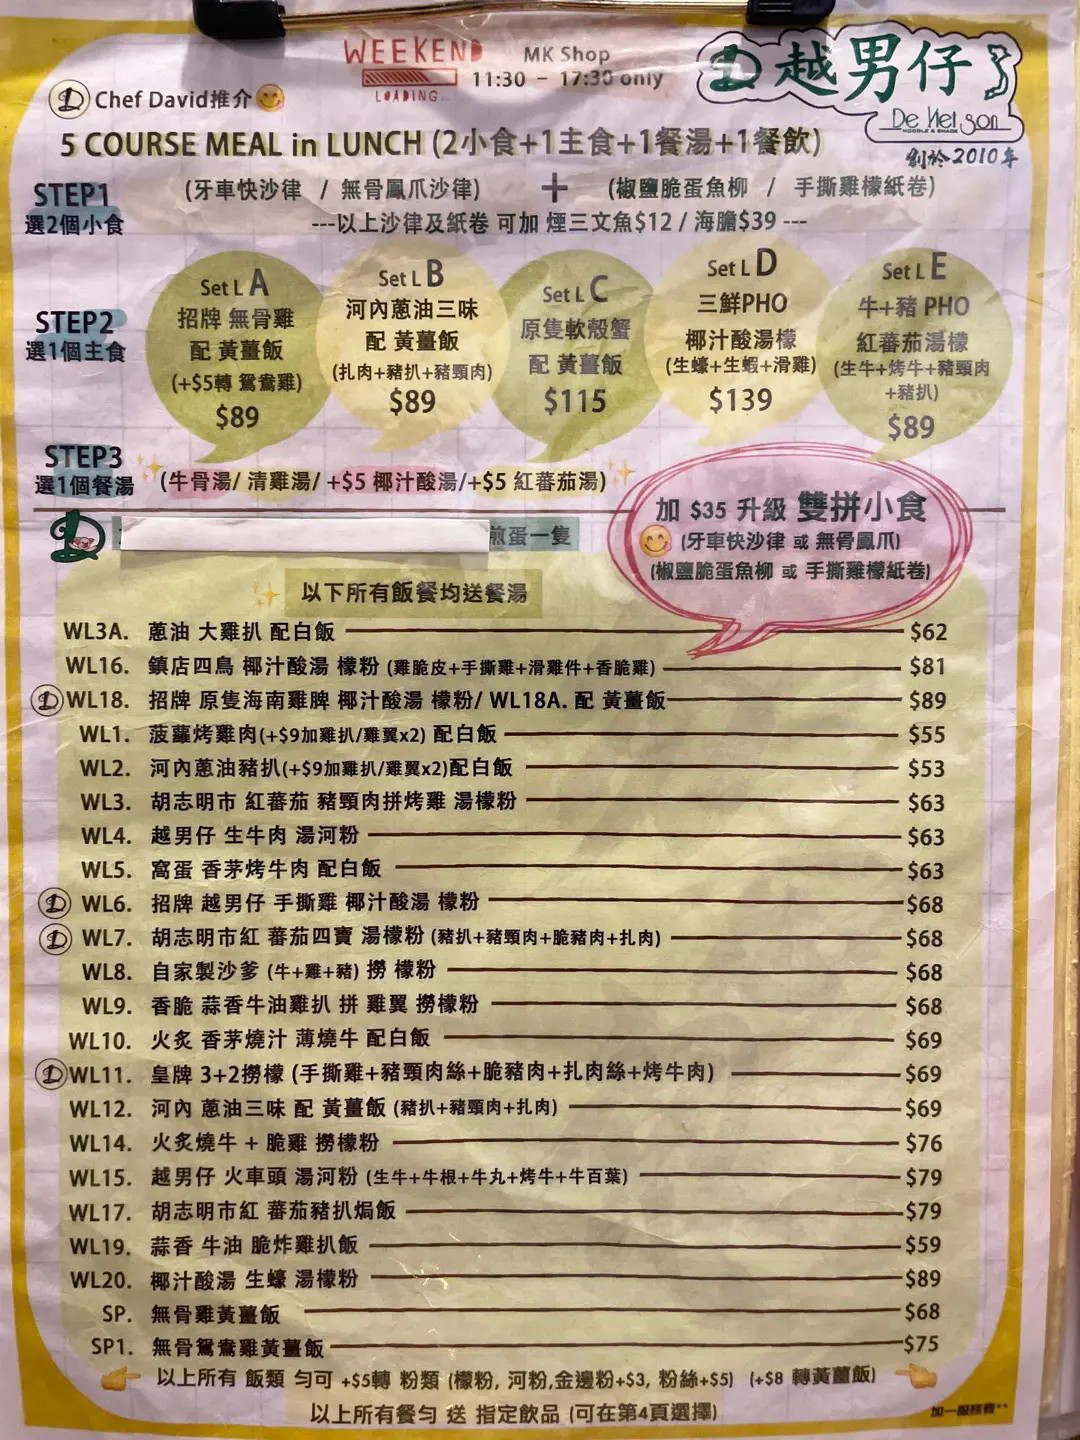 WEEKEND
LOADING...
MK Shop
11:30 - 17:30 only
D 越男仔
De Nei Son
NOODLE & SNACK
創於2010年
D Chef David推介
5 COURSE MEAL in LUNCH (2小食+1主食+1餐湯+1餐飲)
STEP1
選2個小食
(牙車快沙律 / 無骨鳳爪沙律) + (椒鹽脆蛋魚柳 / 手撕雞檬紙卷)
---以上沙律及紙卷 可加 煙三文魚$12 / 海膽$39 ---
STEP2
選1個主食
Set L A
招牌 無骨雞
配 黃薑飯
(+$5轉 鴛鴦雞)
$89
Set L B
河內蔥油三味
配 黃薑飯
(扎肉+豬扒+豬頸肉)
$89
Set L C
原隻軟殼蟹
配 黃薑飯
$115
Set L D
三鮮PHO
椰汁酸湯檬
(生蠔+生蝦+滑雞)
$139
Set L E
牛+豬 PHO
紅蕃茄湯檬
(生牛+烤牛+豬頸肉
+豬扒)
$89
STEP3
選1個餐湯
(牛骨湯/ 清雞湯/ +$5 椰汁酸湯/+$5 紅蕃茄湯)
加 $35 升級 雙拼小食
(牙車快沙律 或 無骨鳳爪)
(椒鹽脆蛋魚柳 或 手撕雞檬紙卷)
煎蛋一隻
以下所有飯餐均送餐湯
WL3A. 蔥油 大雞扒 配白飯 $62
WL16. 鎮店四鳥 椰汁酸湯 檬粉 (雞脆皮+手撕雞+滑雞件+香脆雞) $81
D WL18. 招牌 原隻海南雞脾 椰汁酸湯 檬粉/ WL18A. 配 黃薑飯 $89
WL1. 菠蘿烤雞肉(+$9加雞扒/雞翼x2) 配白飯 $55
WL2. 河內蔥油豬扒(+$9加雞扒/雞翼x2)配白飯 $53
WL3. 胡志明市 紅蕃茄 豬頸肉拼烤雞 湯檬粉 $63
WL4. 越男仔 生牛肉 湯河粉 $63
WL5. 窩蛋 香茅烤牛肉 配白飯 $63
D WL6. 招牌 越男仔 手撕雞 椰汁酸湯 檬粉 $68
D WL7. 胡志明市紅 蕃茄四寶 湯檬粉 (豬扒+豬頸肉+脆豬肉+扎肉) $68
WL8. 自家製沙爹 (牛+雞+豬) 撈 檬粉 $68
WL9. 香脆 蒜香牛油雞扒 拼 雞翼 撈檬粉 $68
WL10. 火炙 香茅燒汁 薄燒牛 配白飯 $69
D WL11. 皇牌 3+2撈檬 (手撕雞+豬頸肉絲+脆豬肉+扎肉絲+烤牛肉) $69
WL12. 河內 蔥油三味 配 黃薑飯 (豬扒+豬頸肉+扎肉) $69
WL14. 火炙燒牛 + 脆雞 撈檬粉 $76
WL15. 越男仔 火車頭 湯河粉 (生牛+牛根+牛丸+烤牛+牛百葉) $79
WL17. 胡志明市紅 蕃茄豬扒焗飯 $79
WL19. 蒜香 牛油 脆炸雞扒飯 $59
WL20. 椰汁酸湯 生蠔 湯檬粉 $89
SP. 無骨雞黃薑飯 $68
SP1. 無骨鴛鴦雞黃薑飯 $75
以上所有 飯類 勻可 +$5轉 粉類 (檬粉, 河粉,金邊粉+$3, 粉絲+$5) (+$8 轉黃薑飯)
以上所有餐勻 送 指定飲品 (可在第4頁選擇)
加一服務費**